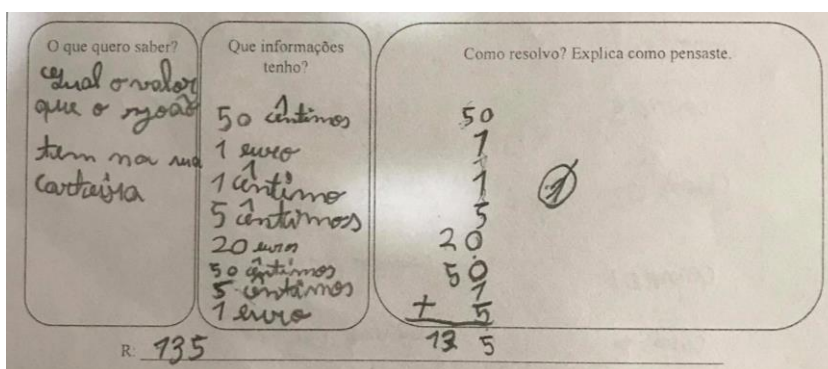 O que quero saber?
Qual o valor
que o João
tem na sua
carteira
Que informações
tenho?
50 cêntimos
1 euro
1 cêntimo
5 cêntimos
20 euros
50 cêntimos
5 cêntimos
1 euro
Como resolvo? Explica como pensaste.
50
1
1
5
20
50
1
+ 5
13 5
1
R: 135